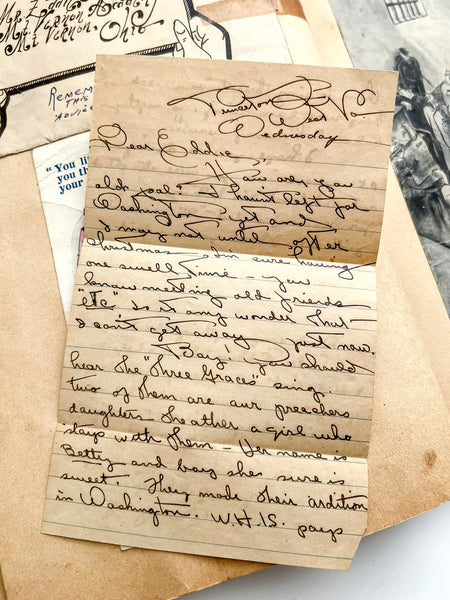 Mt. Vernon Academy
Mt. Vernon, Ohio
REMEM
THIS
ADVICE
"You li
you th
your
Princeton, W. Va.
West
Wednesday
Dear Eddie,
How are you
old soal? I haint left for
Washington yet and
I may not until after
Christmas. I'm sure having
one swell time – you
know meeting old friends
"etc." Is it any wonder that
I can't get away just now.
Boy! you should
hear the "Three Graces" sing
two of them are our preachers
daughters the other a girl who
stays with them – Her name is
Betty and boy she sure is
sweet. They made their audition
in Washington. W.H.I.S. pays